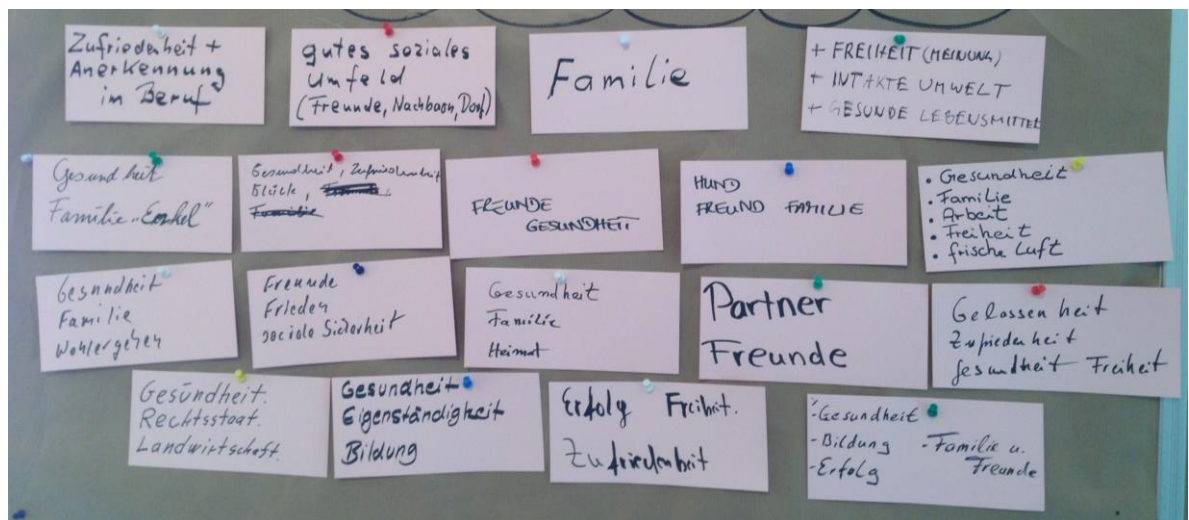 Zufriedenheit +
Anerkennung
im Beruf
gutes soziales
Umfeld
(Freunde, Nachbarn, Dorf)
Familie
+ FREIHEIT (MEINUNG)
+ INTAKTE UMWELT
+ GESUNDE LEBENSMITTEL
Gesundheit
Familie „Enkel"
Gesundheit, Zufriedenheit
Glück,
FREUNDE
GESUNDHEIT
HUND
FREUND FAMILIE
• Gesundheit
• Familie
• Arbeit
• Freiheit
• frische Luft
Gesundheit
Familie
Wohlergehen
Freunde
Frieden
soziale Sicherheit
Gesundheit
Familie
Heimat
Partner
Freunde
Gelassenheit
Zufriedenheit
Gesundheit Freiheit
Gesundheit.
Rechtsstaat.
Landwirtschaft.
Gesundheit
Eigenständigkeit
Bildung
Erfolg Freiheit.
Zufriedenheit
- Gesundheit
- Bildung - Familie u.
- Erfolg Freunde